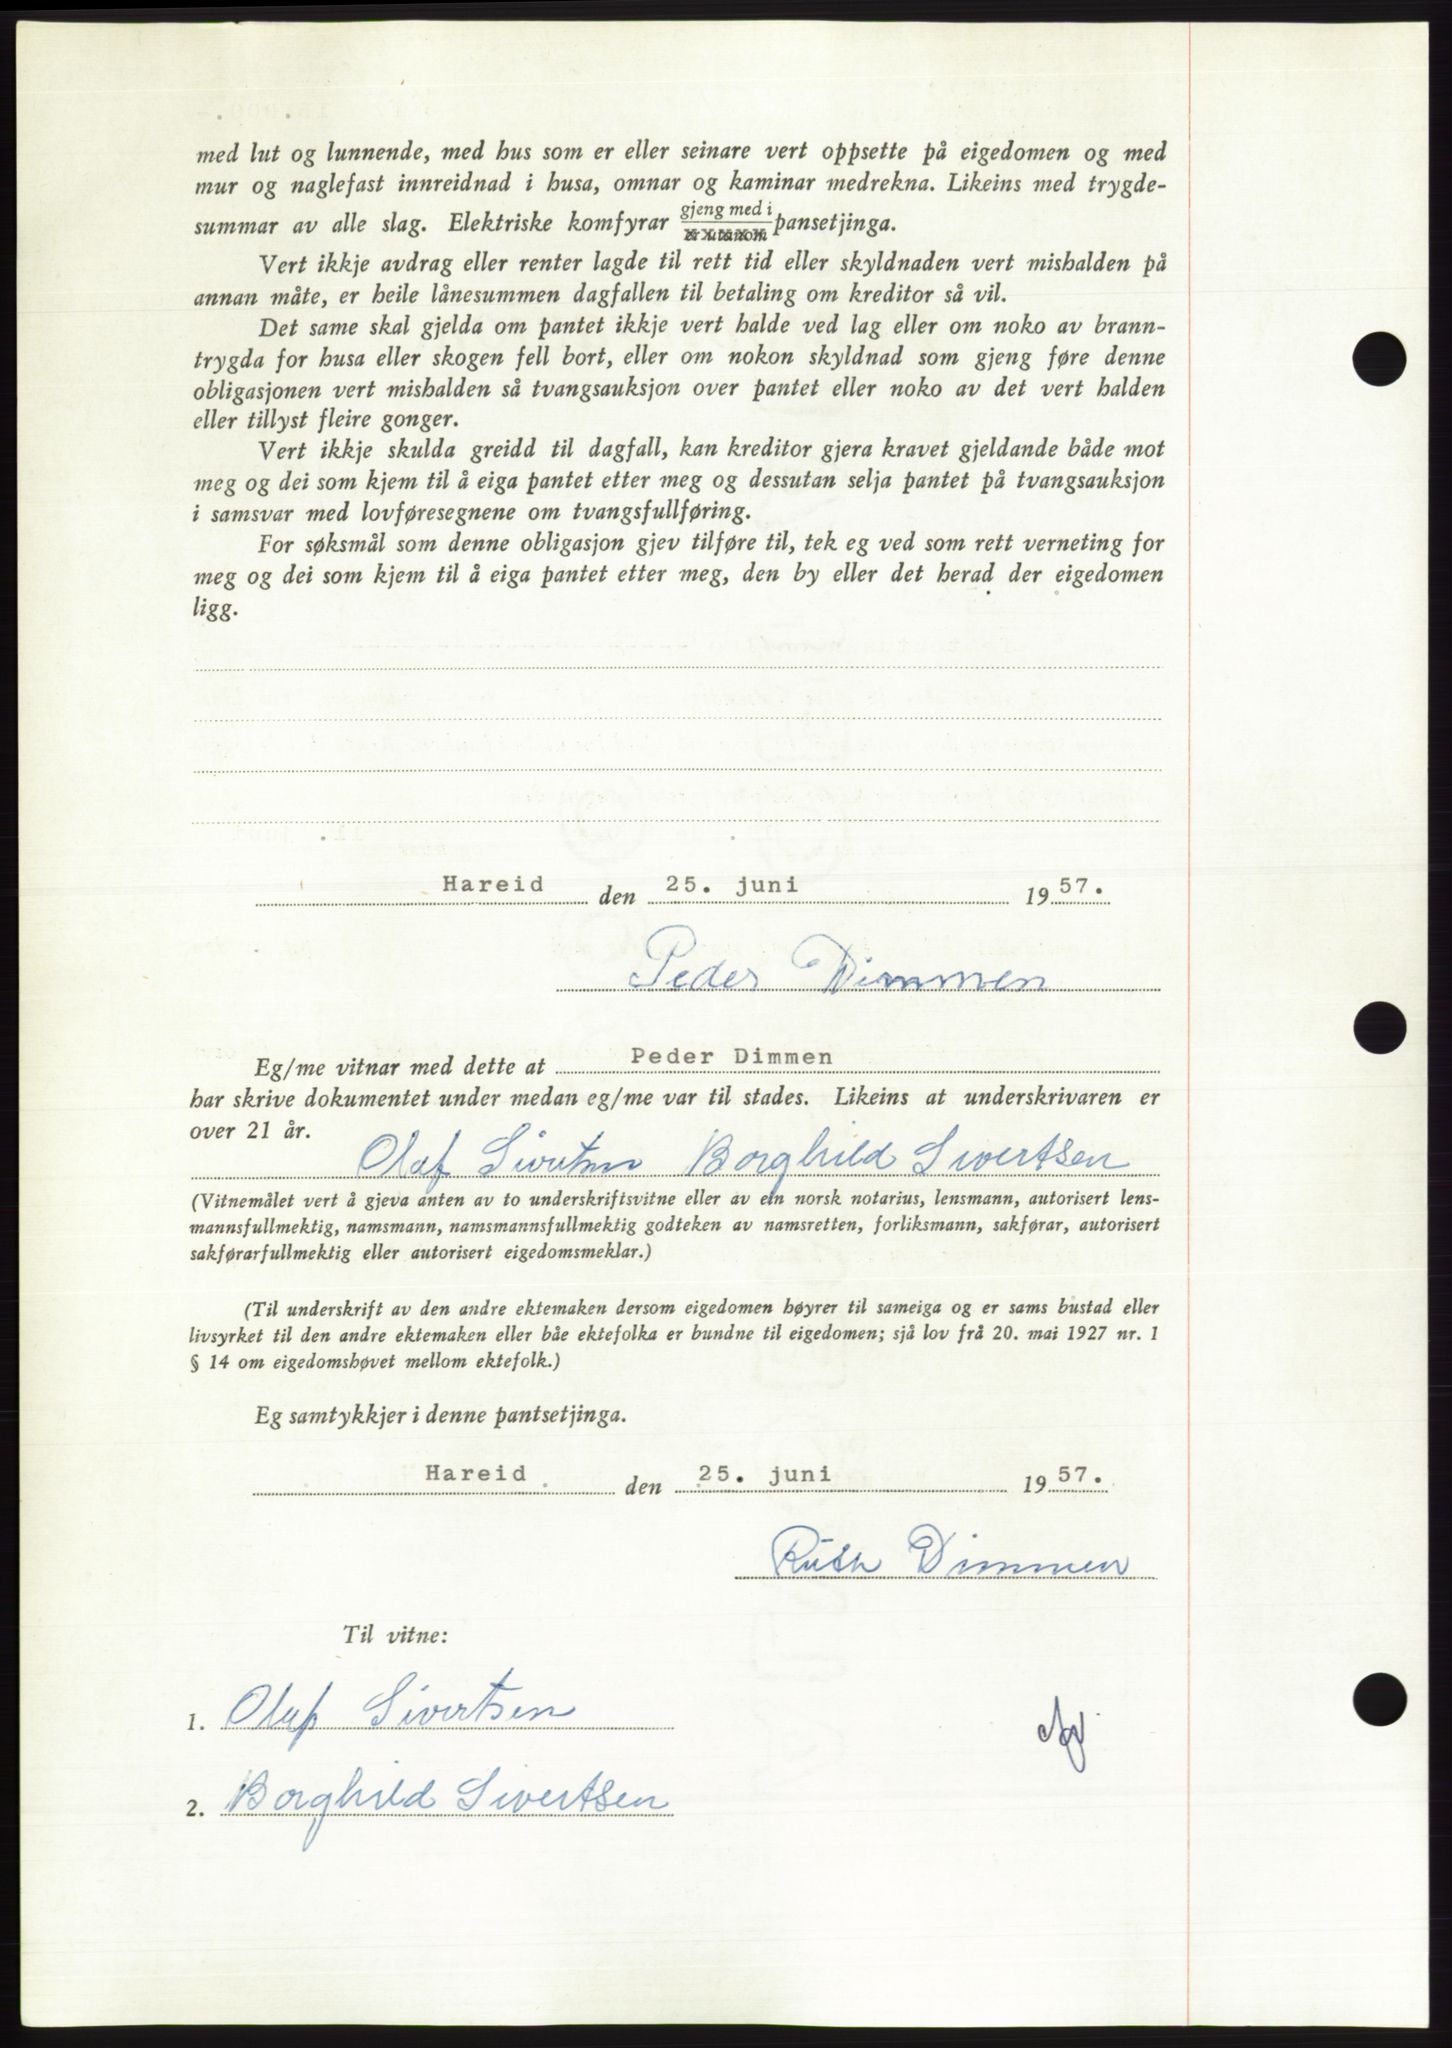 med lut og lunnende, med hus som er eller seinare vert oppsette på eigedomen og med
mur og naglefast innreidnad i husa, omnar og kaminar medrekna. Likeins med trygde-
summar av alle slag. Elektriske komfyrar gjeng med i / er utanom pansetjinga.
Vert ikkje avdrag eller renter lagde til rett tid eller skyldnaden vert mishalden på
annan måte, er heile lånesummen dagfallen til betaling om kreditor så vil.
Det same skal gjelda om pantet ikkje vert halde ved lag eller om noko av brann-
trygda for husa eller skogen fell bort, eller om nokon skyldnad som gjeng føre denne
obligasjonen vert mishalden så tvangsauksjon over pantet eller noko av det vert halden
eller tillyst fleire gonger.
Vert ikkje skulda greidd til dagfall, kan kreditor gjera kravet gjeldande både mot
meg og dei som kjem til å eiga pantet etter meg og dessutan selja pantet på tvangsauksjon
i samsvar med lovføresegnene om tvangsfullføring.
For søksmål som denne obligasjon gjev tilføre til, tek eg ved som rett verneting for
meg og dei som kjem til å eiga pantet etter meg, den by eller det herad der eigedomen
ligg.
Hareid den 25. juni 1957.
Peder Dimmen
Eg/me vitnar med dette at Peder Dimmen
har skrive dokumentet under medan eg/me var til stades. Likeins at underskrivaren er
over 21 år.
Olaf Sivertsen Borghild Sivertsen
(Vitnemålet vert å gjeva anten av to underskriftsvitne eller av ein norsk notarius, lensmann, autorisert lens-
mannsfullmektig, namsmann, namsmannsfullmektig godteken av namsretten, forliksmann, sakførar, autorisert
sakførarfullmektig eller autorisert eigedomsmeklar.)
(Til underskrift av den andre ektemaken dersom eigedomen høyrer til sameiga og er sams bustad eller
livsyrket til den andre ektemaken eller båe ektefolka er bundne til eigedomen; sjå lov frå 20. mai 1927 nr. 1
§ 14 om eigedomshøvet mellom ektefolk.)
Eg samtykkjer i denne pantsetjinga.
Hareid den 25. juni 1957.
Ruth Dimmen
Til vitne:
1. Olaf Sivertsen
2. Borghild Sivertsen